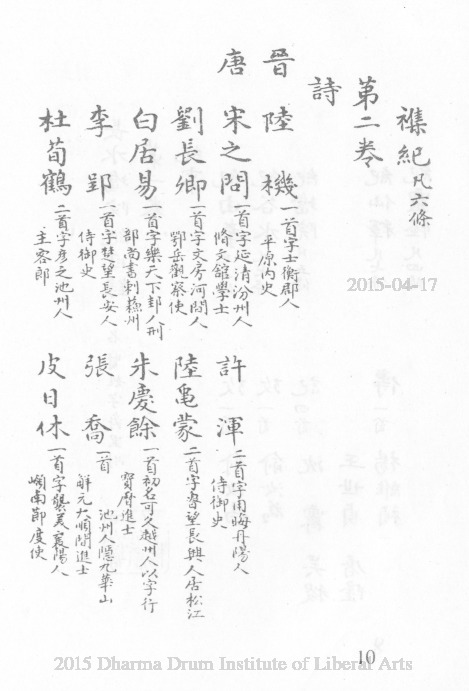 襍紀凡六條
第二卷
詩
晉
陸機一首字士衡郡人
平原内史
唐
宋之問一首字延清汾州人
脩文館學士
許渾二首字用晦丹陽人
侍御史
劉長卿一首字文房河間人
鄂岳觀察使
陸龜蒙二首字魯望長興人居松江
白居易一首字樂天下邽人刑
部尚書刺蘇州
朱慶餘一首初名可久越州人以字行
寶曆進士
李郢一首字楚望長安人
侍御史
張喬一首
池州人隱九華山
解元大順間進士
杜荀鶴二首字彥之池州人
主客郎
皮日休一首字襲美襄陽人
嶺南節度使
2015-04-17
10
2015 Dharma Drum Institute of Liberal Arts